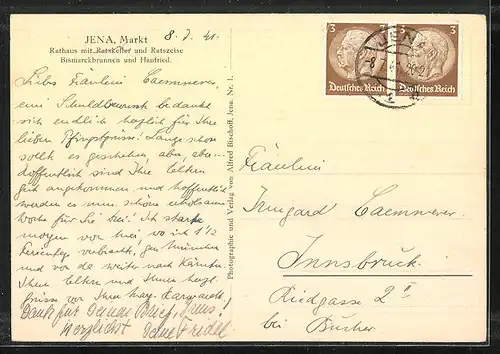 JENA, Markt
8.7.41.
Rathaus mit Ratskeller und Ratszeise
Bismarckbrunnen und Hanfried.
Liebes Fräulein Caemmerer,
eine Schuldbewusst bedanke
sich endlich herzlich für Ihre
lieben Pfingstgrüsse! Lange schon
sollt es geschehen, aber, aber...
Hoffentlich sind Ihre Eltern
gut angekommen und hoffentlich
werden es nun schöne erholsame
Woche für Sie bei! Ich starte
morgen von hier, wo ich 1 1/2
Ferientage verbracht, gen München
und von da weiter nach Kärnten.
Ihren Eltern und Ihnen herzl.
Grüsse von Ihrer
Dank für Deinen Brief,
Herzlichst Deine Friedel
Photographie und Verlag von Alfred Bischoff, Jena. Nr. 1.
3 3
Deutsches Reich Deutsches Reich
JENA
Fräulein
Irmgard Caemmerer
Innsbruck.
Riedgasse 2 II
bei Bucher